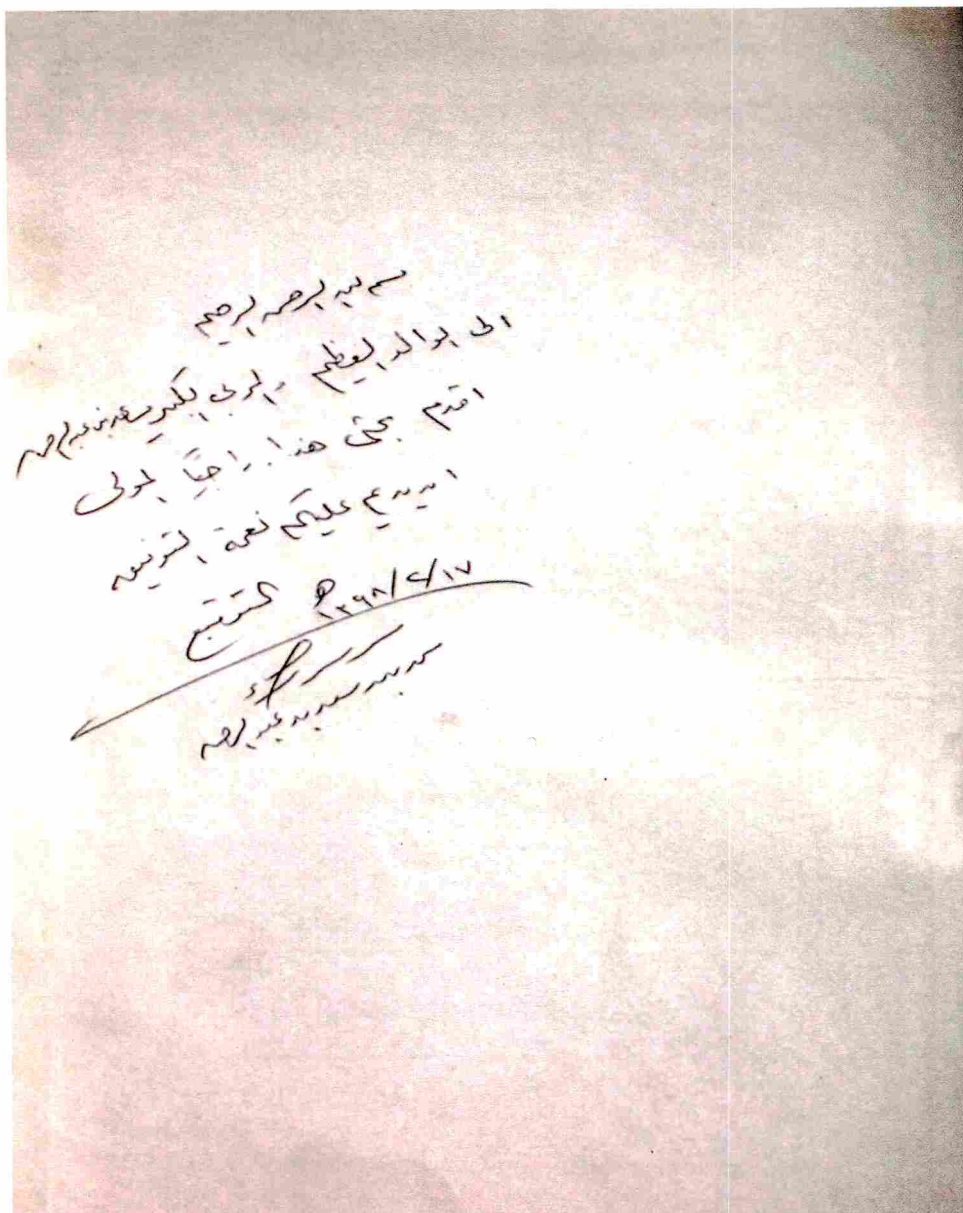 بسم الله الرحمن الرحيم
الى الوالد العظيم والمربى الكبير سعد بن عبد الرحمن
اقدم بحثى هذا راجيًا المولى
ان يديم عليكم نعمة التوفيق
١٣٩٨/٢/١٧ هـ
بن سعد بن عبد الرحمن